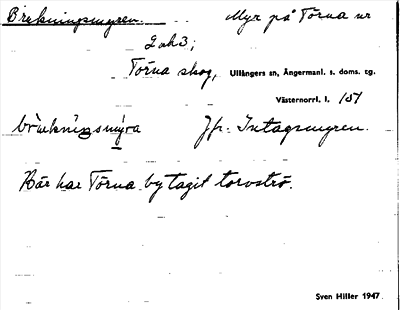 Brekningsmyren. Myr på Törna nr
2 och 3;
Törna skog, Ullångers sn, Ångermanl. s. doms. tg.
Västernorrl. l. 151
brækniŋsmýra Jfr. Intagsmyren.
Här har Törna by tagit torvströ.
Sven Hiller 1947.